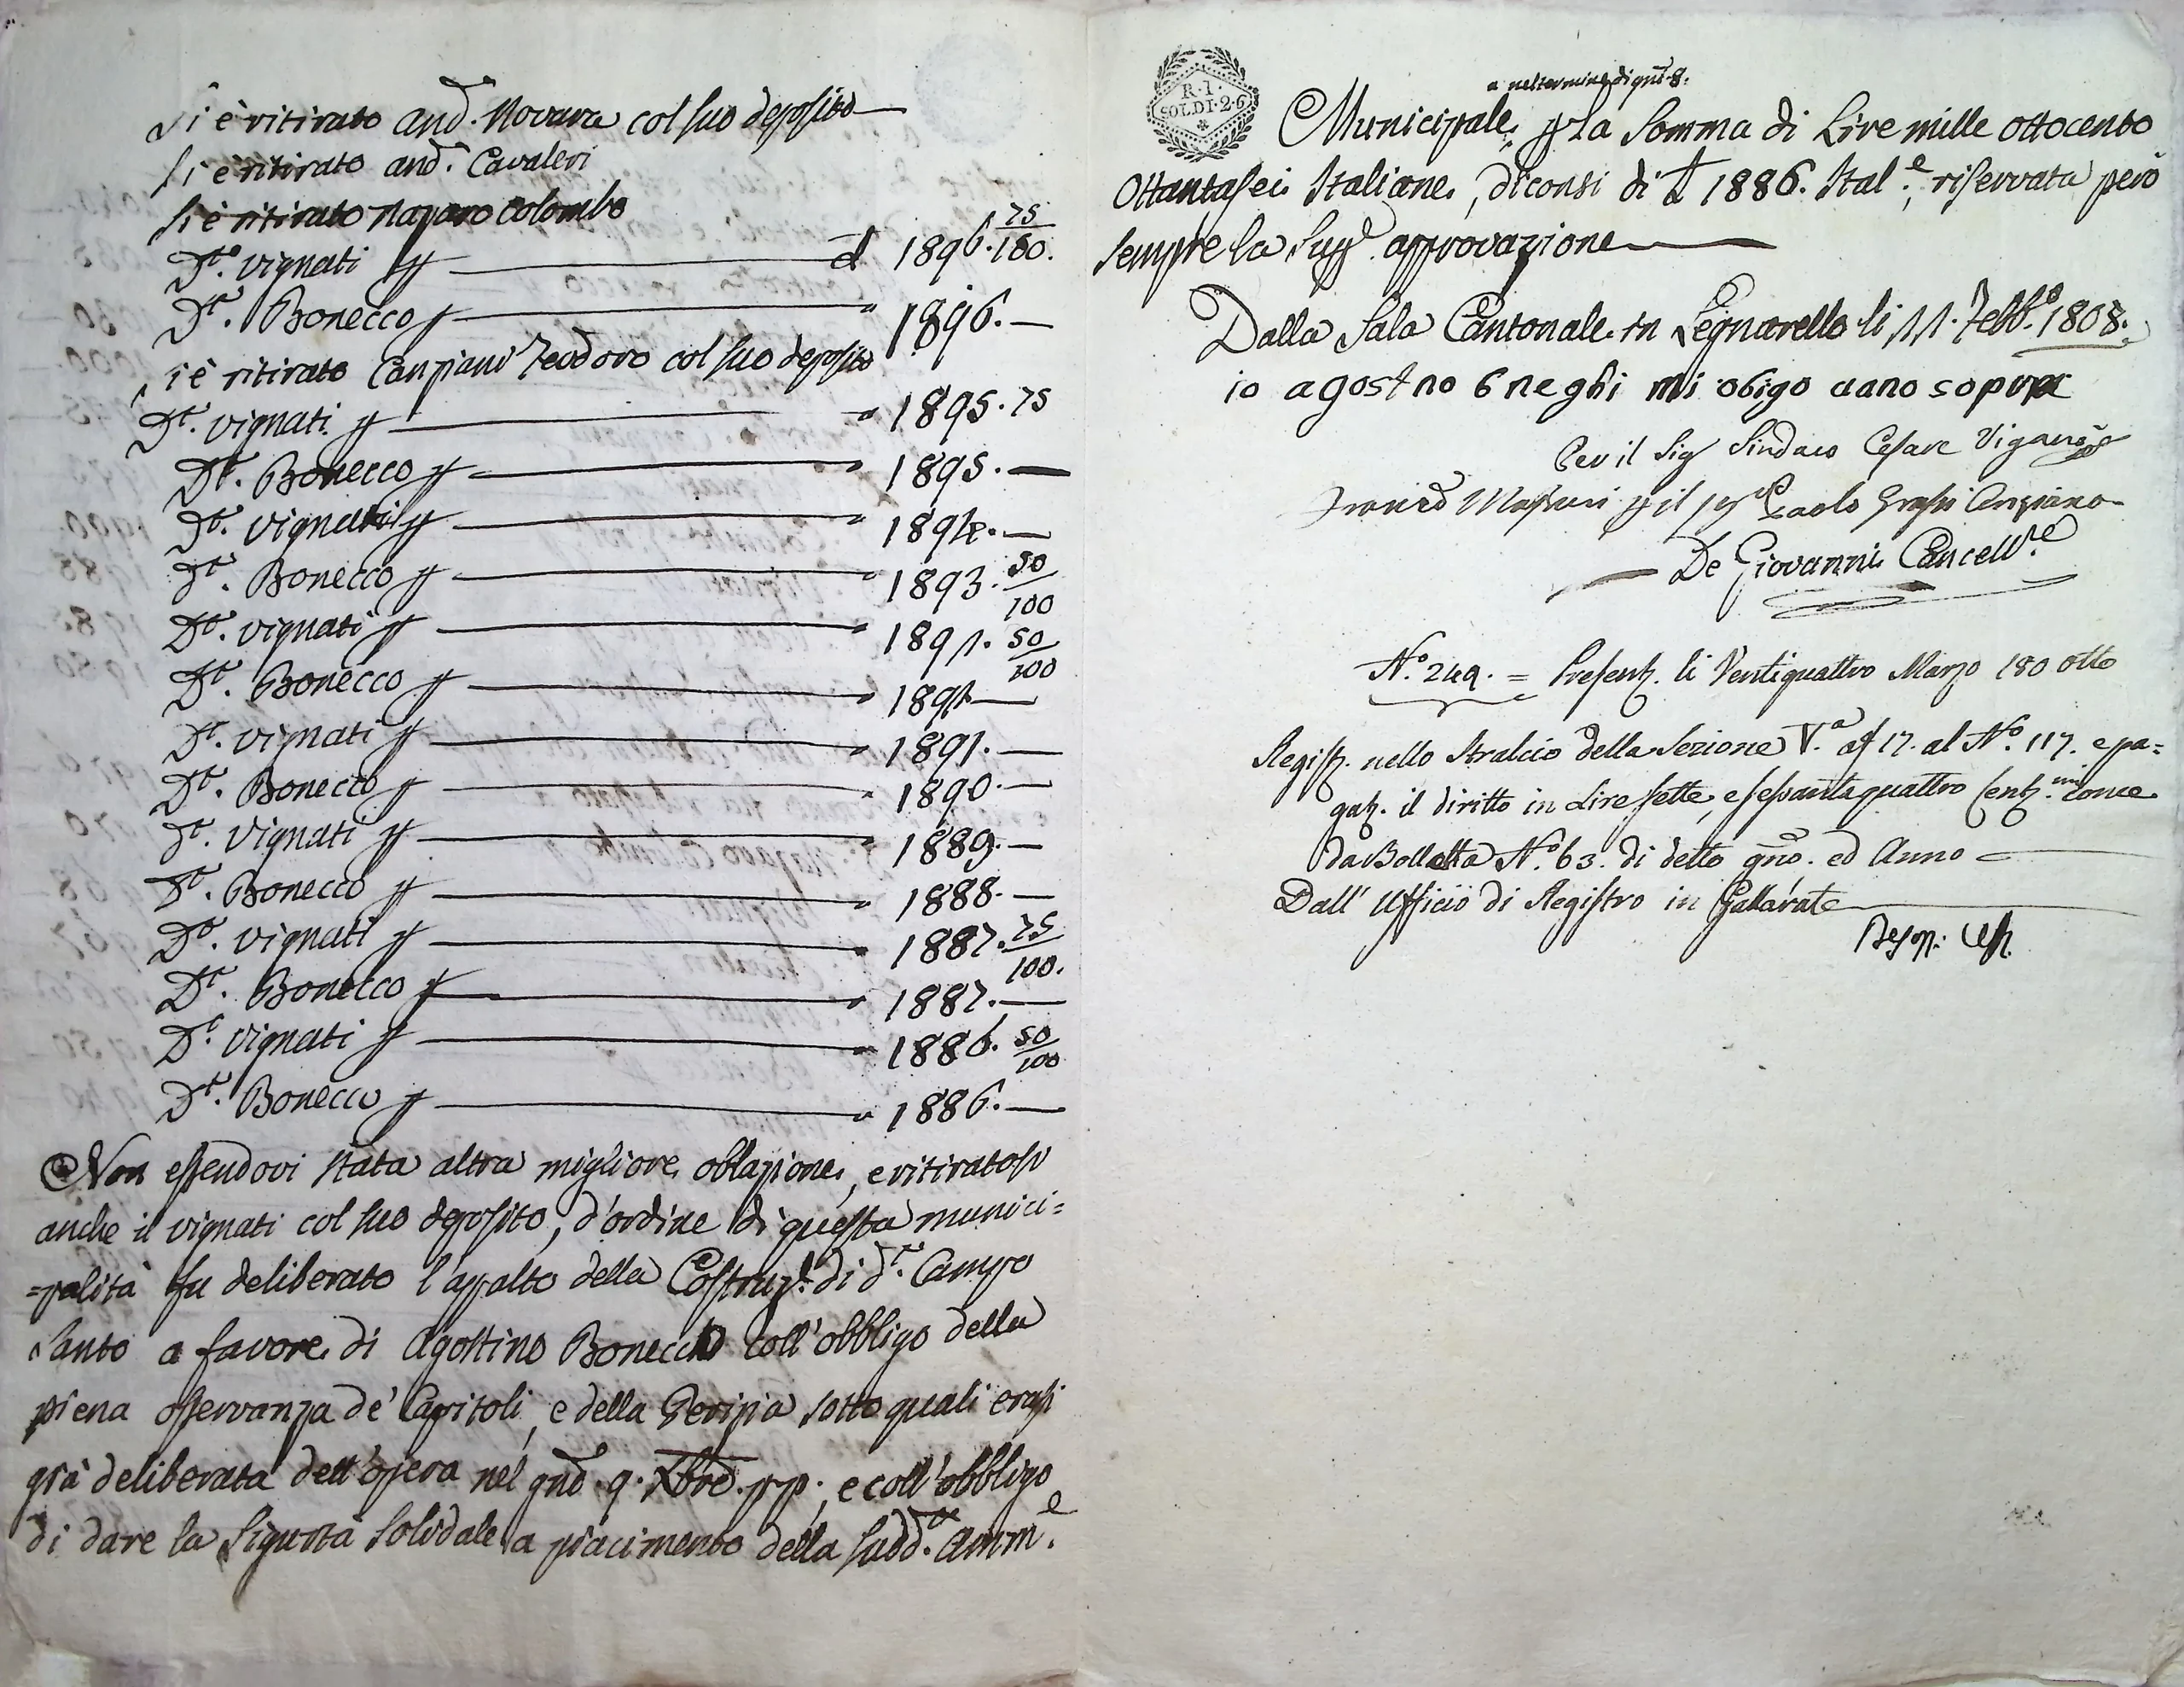 Si è ritirato And. Novara col suo deposito
Si è ritirato And. Cavaleri
Si è ritirato Nazaro Colombo
Dto. Vignati p £ 1896. 75/100.
Dto. Bonecco p " 1896.
Si è ritirato Canziani Teodoro col suo deposito
Dto. Vignati p " 1895. 75
Dto. Bonecco p " 1895.
Dto. Vignati p " 1894.
Dto. Bonecco p " 1893. 50/100
Dto. Vignati p " 1891. 50/100
Dto. Bonecco p
Dto. Vignati p " 1891.
Dto. Bonecco p " 1890.
Dto. Vignati p " 1889.
Dto. Bonecco p " 1888.
Dto. Vignati p " 1887. 75/100.
Dto. Bonecco p " 1887.
Dto. Vignati p " 1886. 50/100
Dto. Bonecco p " 1886.
Non essendovi stata altra migliore oblazione, e ritiratosi
anche il Vignati col suo deposito, d'ordine di questa munici=
=palità fu deliberato l'appalto della Costruze. di dto. Campo
Santo a favore di Agostino Bonecco coll'obbligo della
piena osservanza de' Capitoli, e della Perizia sotto quali erasi
già deliberata dett'opera nel gno. 9. Xbre. pp., e coll'obbligo
di dare la Sigurtà solidale a piacimento della sudda. Amme.
R. I.
SOLDI. 2. 6
a nel termine di gni. 8.
Municipale, p la somma di Lire mille ottocento
Ottantasei Italiane, diconsi di £ 1886. Itale., riservata però
sempre la Supe. approvazione
Dalla Sala Cantonale in Legnarello li 11. Febbo. 1808.
io agostno Bneghi mi obigo uano sopra
Per il Sig Sindaco Cesare Viganò
p il Sigr Paolo Grassi Anziano
De Giovanni Cancellre
No. 249. = Presentz. li Ventiquattro Marzo 180 otto
Registz. nello Stralcio della Sezione V.a a f 17. al No. 117. e pa=
gatz. il diritto in Lire sette, e sessantaquattro Centz.mi come
da Bolletta No. 63. di detto gno. ed Anno =
Dall' Ufficio di Registro in Gallarate